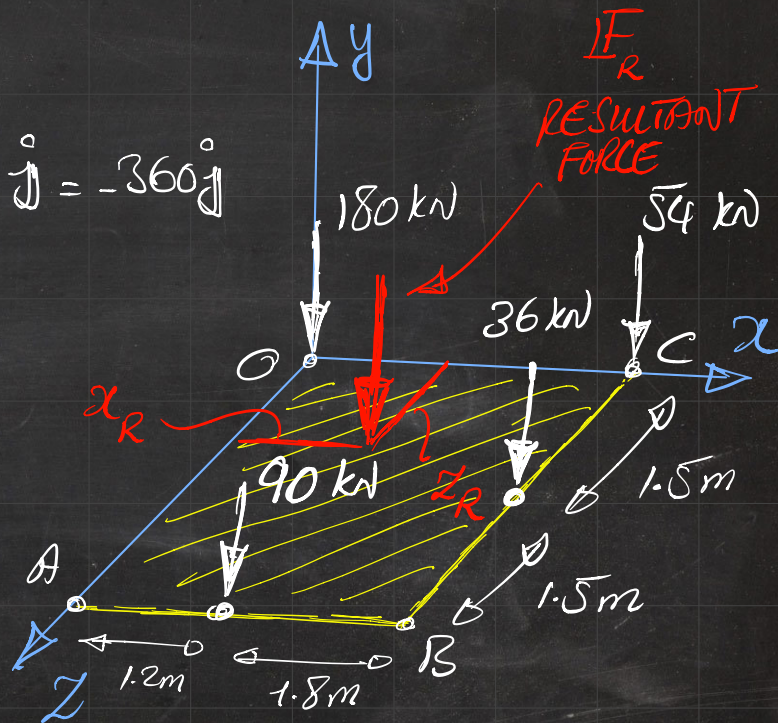 y
F_R
RESULTANT
FORCE
j = -360j
180 kN
54 kN
36 kN
O
C
x
x_R
90 kN
z_R
1.5m
A
1.5m
B
1.2m
1.8m
Z